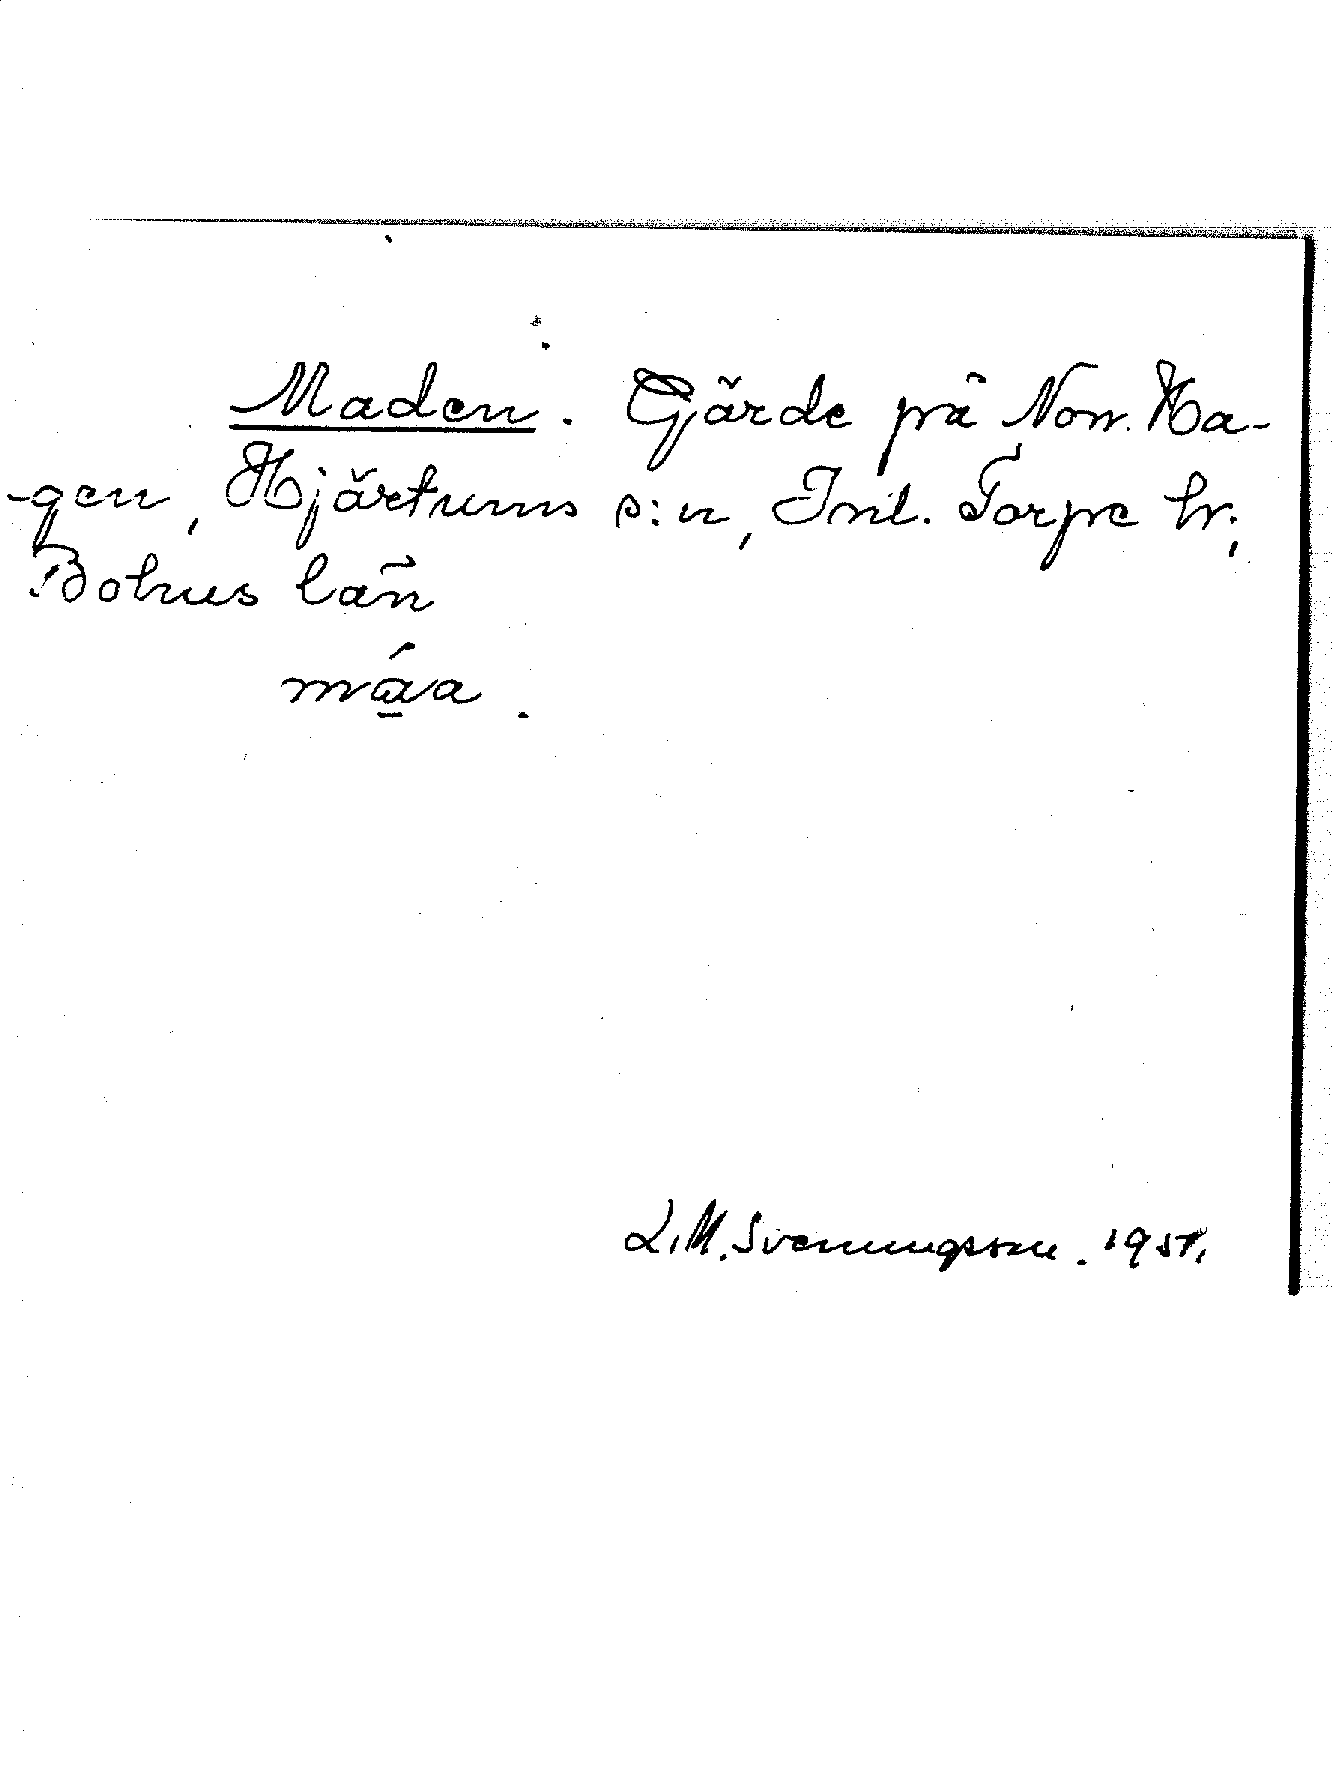 Maden. Gärde på Norr. Ha-
-gen, Hjärtums s:n, Inl. Torpe hr.,
Bohus län
måa.
L.M. Svenningsson. 1951.